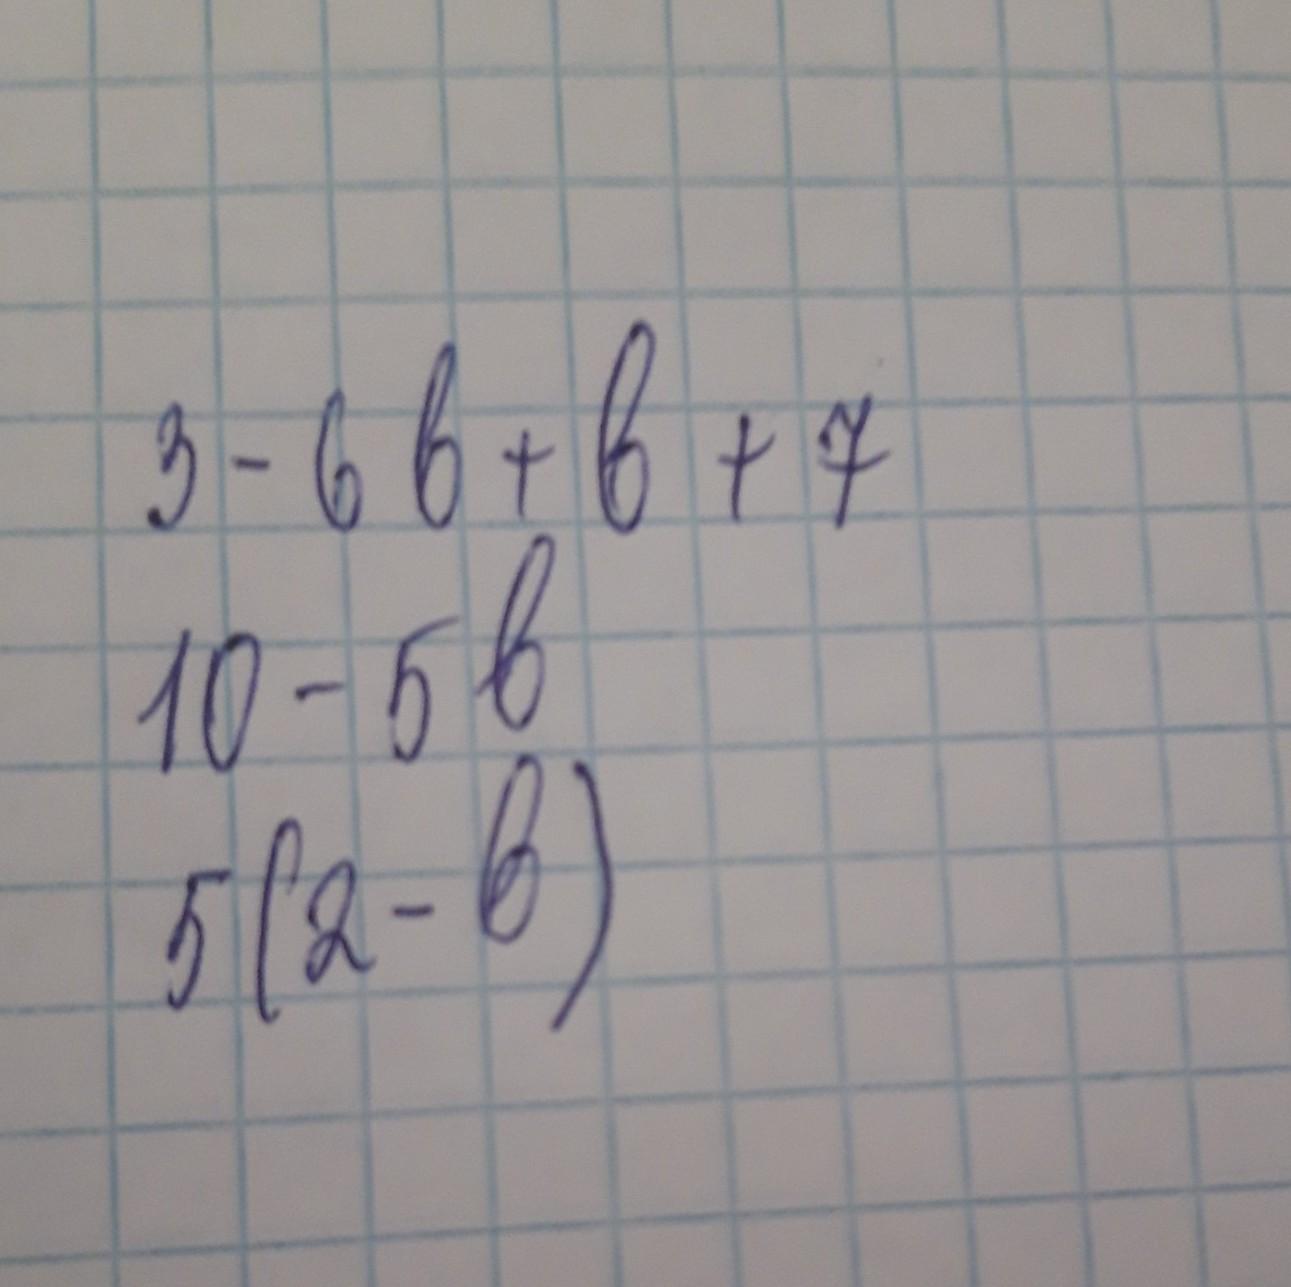 3 - 6b + b + 7
10 - 5b
5(2 - b)